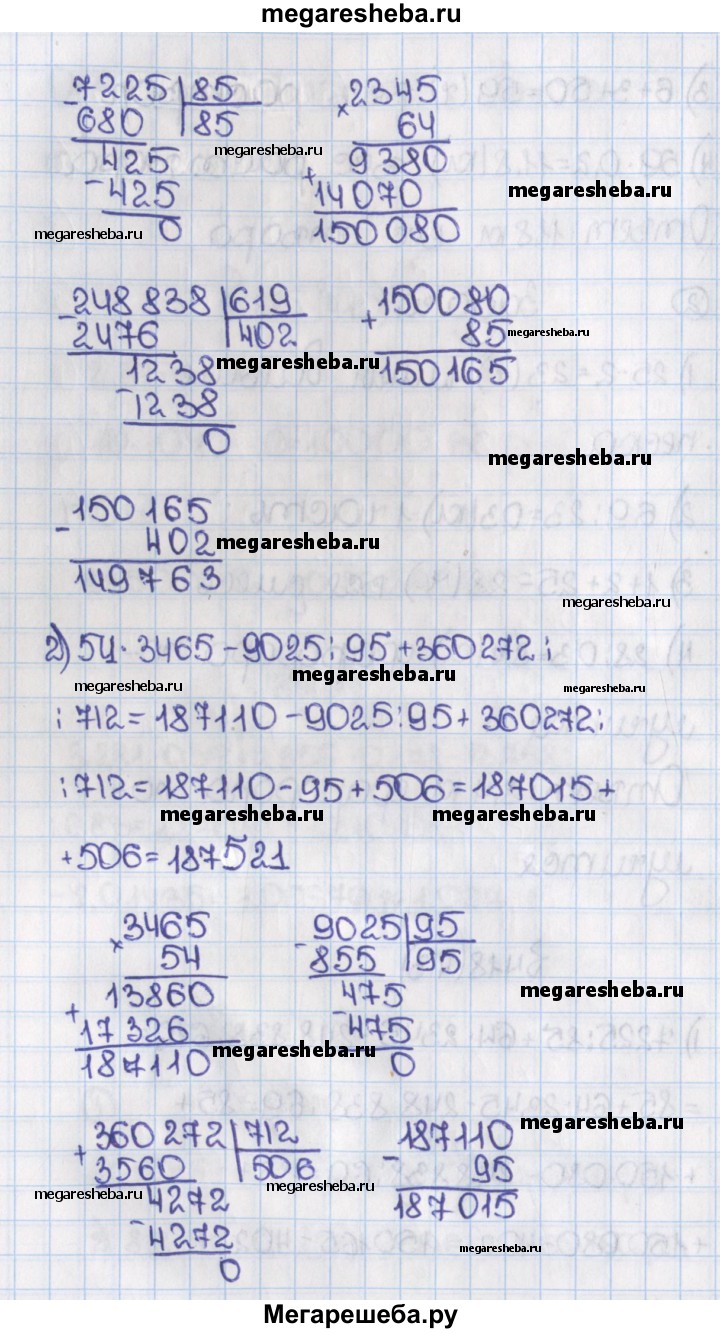 megaresheba.ru
7225 | 85      × 2345
- 680 | 85      64
megaresheba.ru
425      9380
- 425      + 14070
megaresheba.ru
megaresheba.ru
0      150080
- 248838 | 619      + 150080
2476 | 402      85
megaresheba.ru
1238      150165
- 1238
0
megaresheba.ru
- 150165
402
megaresheba.ru
149763
megaresheba.ru
2) 54 · 3465 - 9025 : 95 + 360272 :
megaresheba.ru
megaresheba.ru
: 712 = 187110 - 9025 : 95 + 360272 :
: 712 = 187110 - 95 + 506 = 187015 +
megaresheba.ru
megaresheba.ru
+ 506 = 187521
× 3465      - 9025 | 95
54      855 | 95
13860      475
megaresheba.ru
+ 17326      - 475
187110      0
megaresheba.ru
+ 360272 | 712      - 187110
megaresheba.ru
3560 | 506      95
megaresheba.ru
megaresheba.ru
4272      187015
- 4272
megaresheba.ru
0
Мегарешеба.ру